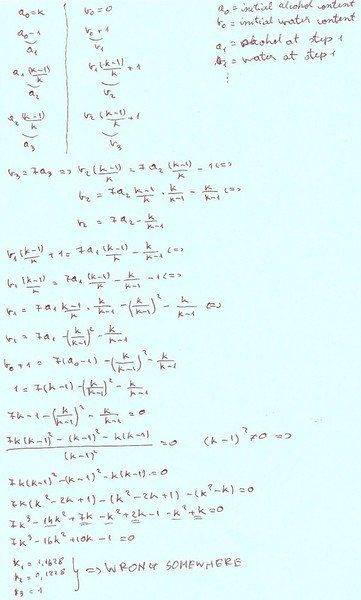 a₀=k b₀=0 a₀=initial alcohol content
a₀-1 b₀+1 b₀=initial water content
a₁ b₁ a₁=alcohol at step 1
a₁(k-1)/k b₁(k-1)/k+1 b₂=water at step 1
a₂ b₂
a₂(k-1)/k b₂(k-1)/k+1
a₃ b₃
b₃=7a₃ => b₂(k-1)/k=7a₂(k-1)/k-1<=>
b₂=7a₂ k-1/k · k/k-1 - k/k-1 <=>
b₂=7a₂-k/k-1
b₁(k-1)/k+1=7a₁(k-1)/k-k/k-1<=>
b₁(k-1)/k=7a₁(k-1)/k-k/k-1-1<=>
b₁=7a₁ k-1/k · k/k-1-(k/k-1)²-k/k-1 <=>
b₁=7a₁-(k/k-1)²-k/k-1
b₀+1=7(a₀-1)-(k/k-1)²-k/k-1
1=7(k-1)-(k/k-1)²-k/k-1
7k-1-(k/k-1)²-k/k-1=0
7k(k-1)²-(k-1)²-k(k-1)/(k-1)²=0 (k-1)²≠0 =>
7k(k-1)²-(k-1)²-k(k-1)=0
7k(k²-2k+1)-(k²-2k+1)-(k²-k)=0
7k³-14k²+7k-k²+2k-1-k²+k=0
7k³-16k²+10k-1=0
k₁=1,1628
k₂=0,1228 } => WRONG SOMEWHERE
k₃=1